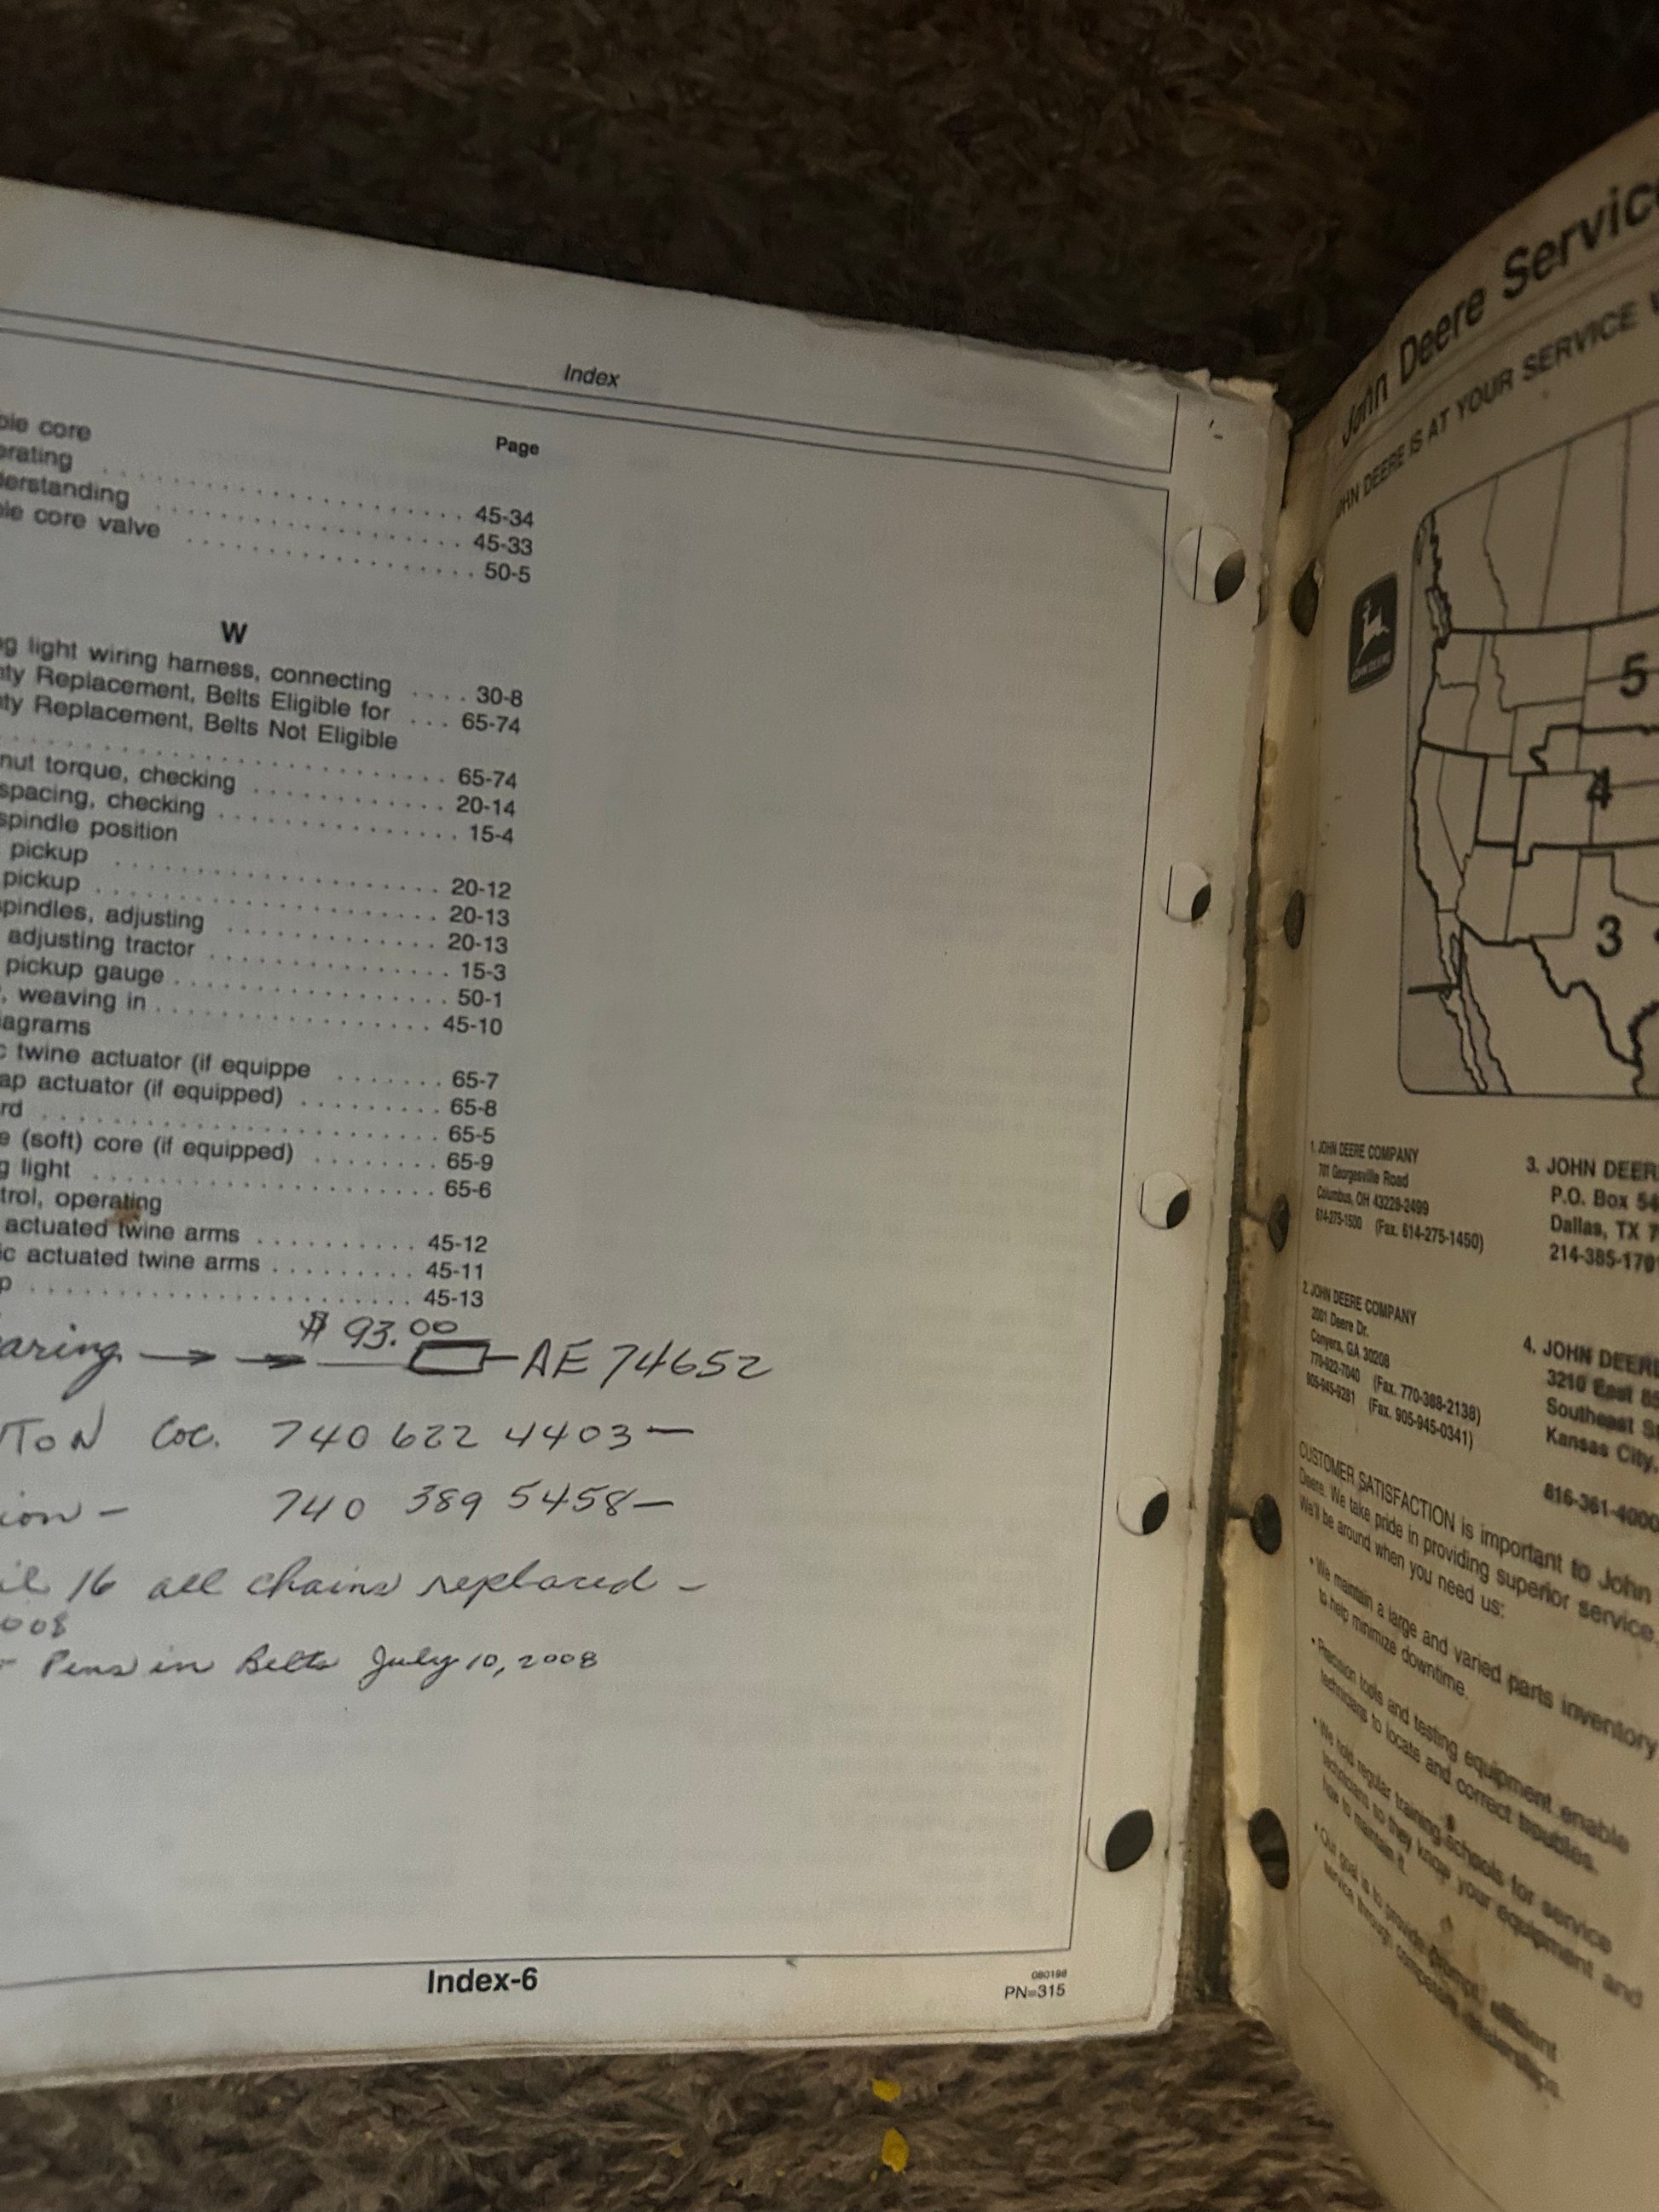 Index
Page
ble core
erating . . . . . . . . . . . . . . . . . . . . . . . . 45-34
derstanding . . . . . . . . . . . . . . . . . . . . 45-33
ble core valve . . . . . . . . . . . . . . . . . . 50-5
W
ng light wiring harness, connecting . . . . 30-8
nty Replacement, Belts Eligible for . . . 65-74
nty Replacement, Belts Not Eligible
. . . . . . . . . . . . . . . . . . . . . . . . . . . . 65-74
nut torque, checking . . . . . . . . . . . . 20-14
spacing, checking . . . . . . . . . . . . . . . 15-4
spindle position
pickup . . . . . . . . . . . . . . . . . . . . . . 20-12
pickup . . . . . . . . . . . . . . . . . . . . . . 20-13
spindles, adjusting . . . . . . . . . . . . . . 20-13
adjusting tractor . . . . . . . . . . . . . . . 15-3
pickup gauge . . . . . . . . . . . . . . . . . . 50-1
, weaving in . . . . . . . . . . . . . . . . . . 45-10
iagrams
c twine actuator (if equippe . . . . . . . 65-7
ap actuator (if equipped) . . . . . . . . . 65-8
rd . . . . . . . . . . . . . . . . . . . . . . . . . . 65-5
e (soft) core (if equipped) . . . . . . . . 65-9
g light . . . . . . . . . . . . . . . . . . . . . . 65-6
trol, operating
actuated twine arms . . . . . . . . . . . 45-12
ic actuated twine arms . . . . . . . . . 45-11
p . . . . . . . . . . . . . . . . . . . . . . . . . . 45-13
$ 93.00
aring → → AE 74652
TON Coc. 740 622 4403 —
ion - 740 389 5458 —
il 16 all chains replaced -
008
- Pens in Belts July 10, 2008
Index-6
080198
PN=315
John Deere Servic
JOHN DEERE IS AT YOUR SERVICE
JOHN DEERE
5
4
3
1. JOHN DEERE COMPANY
701 Georgesville Road
Columbus, OH 43228-2499
614-275-1500 (Fax. 614-275-1450)
2. JOHN DEERE COMPANY
2001 Deere Dr.
Conyers, GA 30208
770-922-7040 (Fax. 770-388-2138)
905-945-9281 (Fax. 905-945-0341)
3. JOHN DEER
P.O. Box 54
Dallas, TX 7
214-385-1701
4. JOHN DEERE
3210 East 85
Southeast S
Kansas City,
816-361-4000
CUSTOMER SATISFACTION is important to John
Deere. We take pride in providing superior service.
We'll be around when you need us:
• We maintain a large and varied parts inventory
to help minimize downtime.
• Precision tools and testing equipment enable
technicians to locate and correct troubles.
• We hold regular training schools for service
technicians so they know your equipment and
how to maintain it.
• Our goal is to provide prompt, efficient
service through competent dealerships.